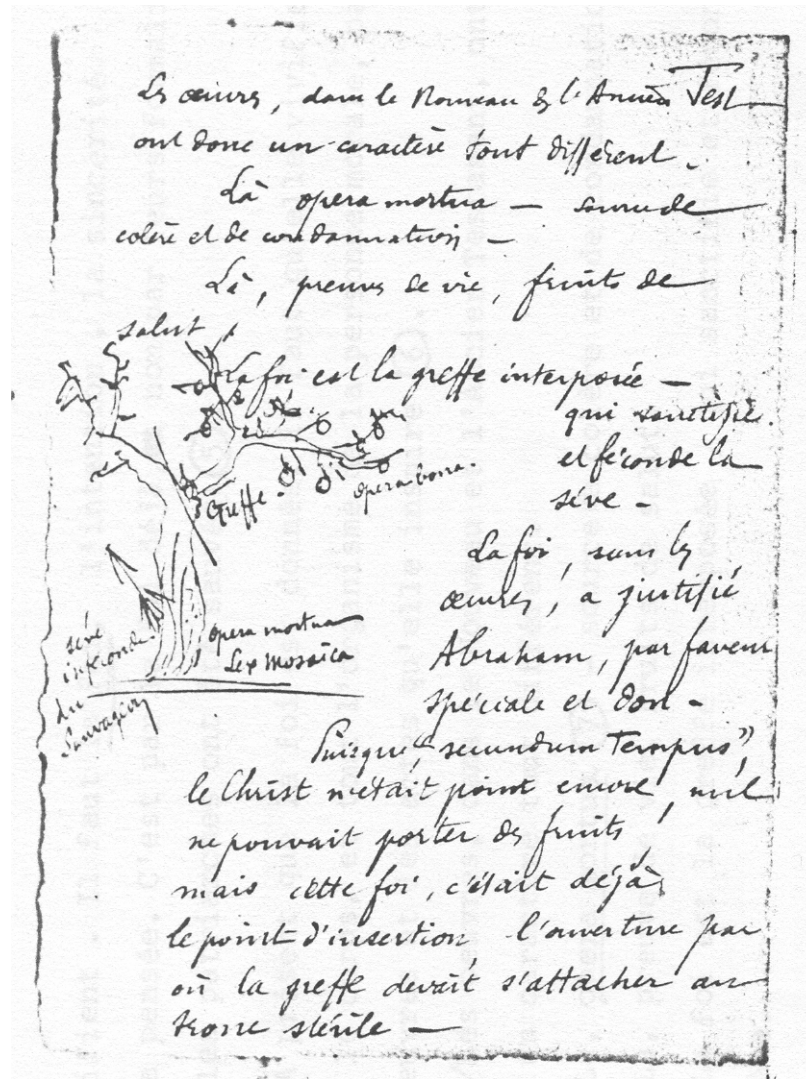 Les œuvres, dans le Nouveau & l'Ancien Test
ont donc un caractère tout différent.
Là opera mortua — source de
colère et de condamnation —
Là, preuves de vie, fruits de
salut
La foi est la greffe interposée —
qui sanctifie
et féconde la
sève —
Greffe.
opera bona.
La foi, sans les
œuvres, a justifié
Abraham, par faveur
spéciale et don —
opera mortua
Lex Mosaïca
sève
inféconde
du
Sauvageon
Puisque, "secundum Tempus",
le Christ n'était point encore, nul
ne pouvait porter des fruits,
mais cette foi, c'était déjà
le point d'insertion, l'ouverture par
où la greffe devait s'attacher au
tronc stérile —